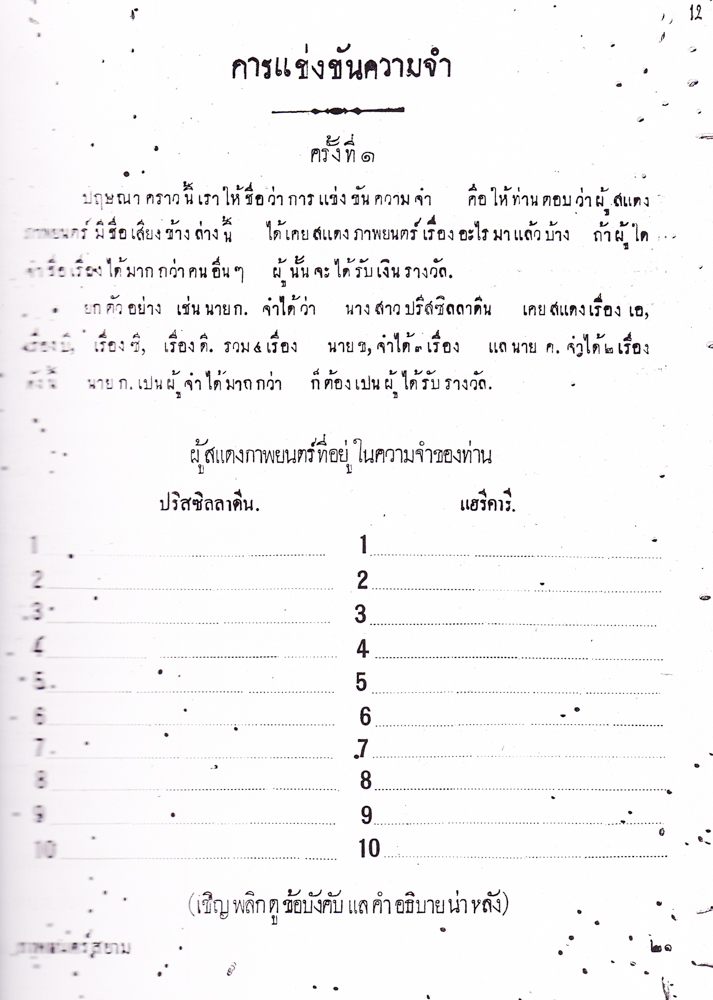 12
การแข่งขันความจำ
ครั้งที่ ๑
ปฤษณาคราวนี้เราให้ชื่อว่าการแข่งขันความจำ คือให้ท่านตอบว่าผู้สแดง
ภาพยนตร์มีชื่อเสียงข้างล่างนี้ ได้เคยสแดงภาพยนตร์เรื่องอะไรมาแล้วบ้าง ถ้าผู้ใด
จำชื่อเรื่องได้มากกว่าคนอื่นๆ ผู้นั้นจะได้รับเงินรางวัล.
ยกตัวอย่าง เช่นนายก. จำได้ว่า นางสาวปริสซิลลาดีน เคยสแดงเรื่อง เอ,
เรื่องบี, เรื่องซี, เรื่องดี. รวม ๔ เรื่อง นายข, จำได้ ๓ เรื่อง แลนาย ค. จำได้ ๒ เรื่อง
ดังนี้ นาย ก. เปนผู้จำได้มากกว่า ก็ต้องเปนผู้ได้รับรางวัล.
ผู้สแดงภาพยนตร์ที่อยู่ในความจำของท่าน
ปริสซิลลาดีน. แฮรีคารี.
1 1
2 2
3 3
4 4
5 5
6 6
7 7
8 8
9 9
10 10
(เชิญพลิกดูข้อบังคับแลคำอธิบายน่าหลัง)
ภาพยนตร์สยาม ๒๑